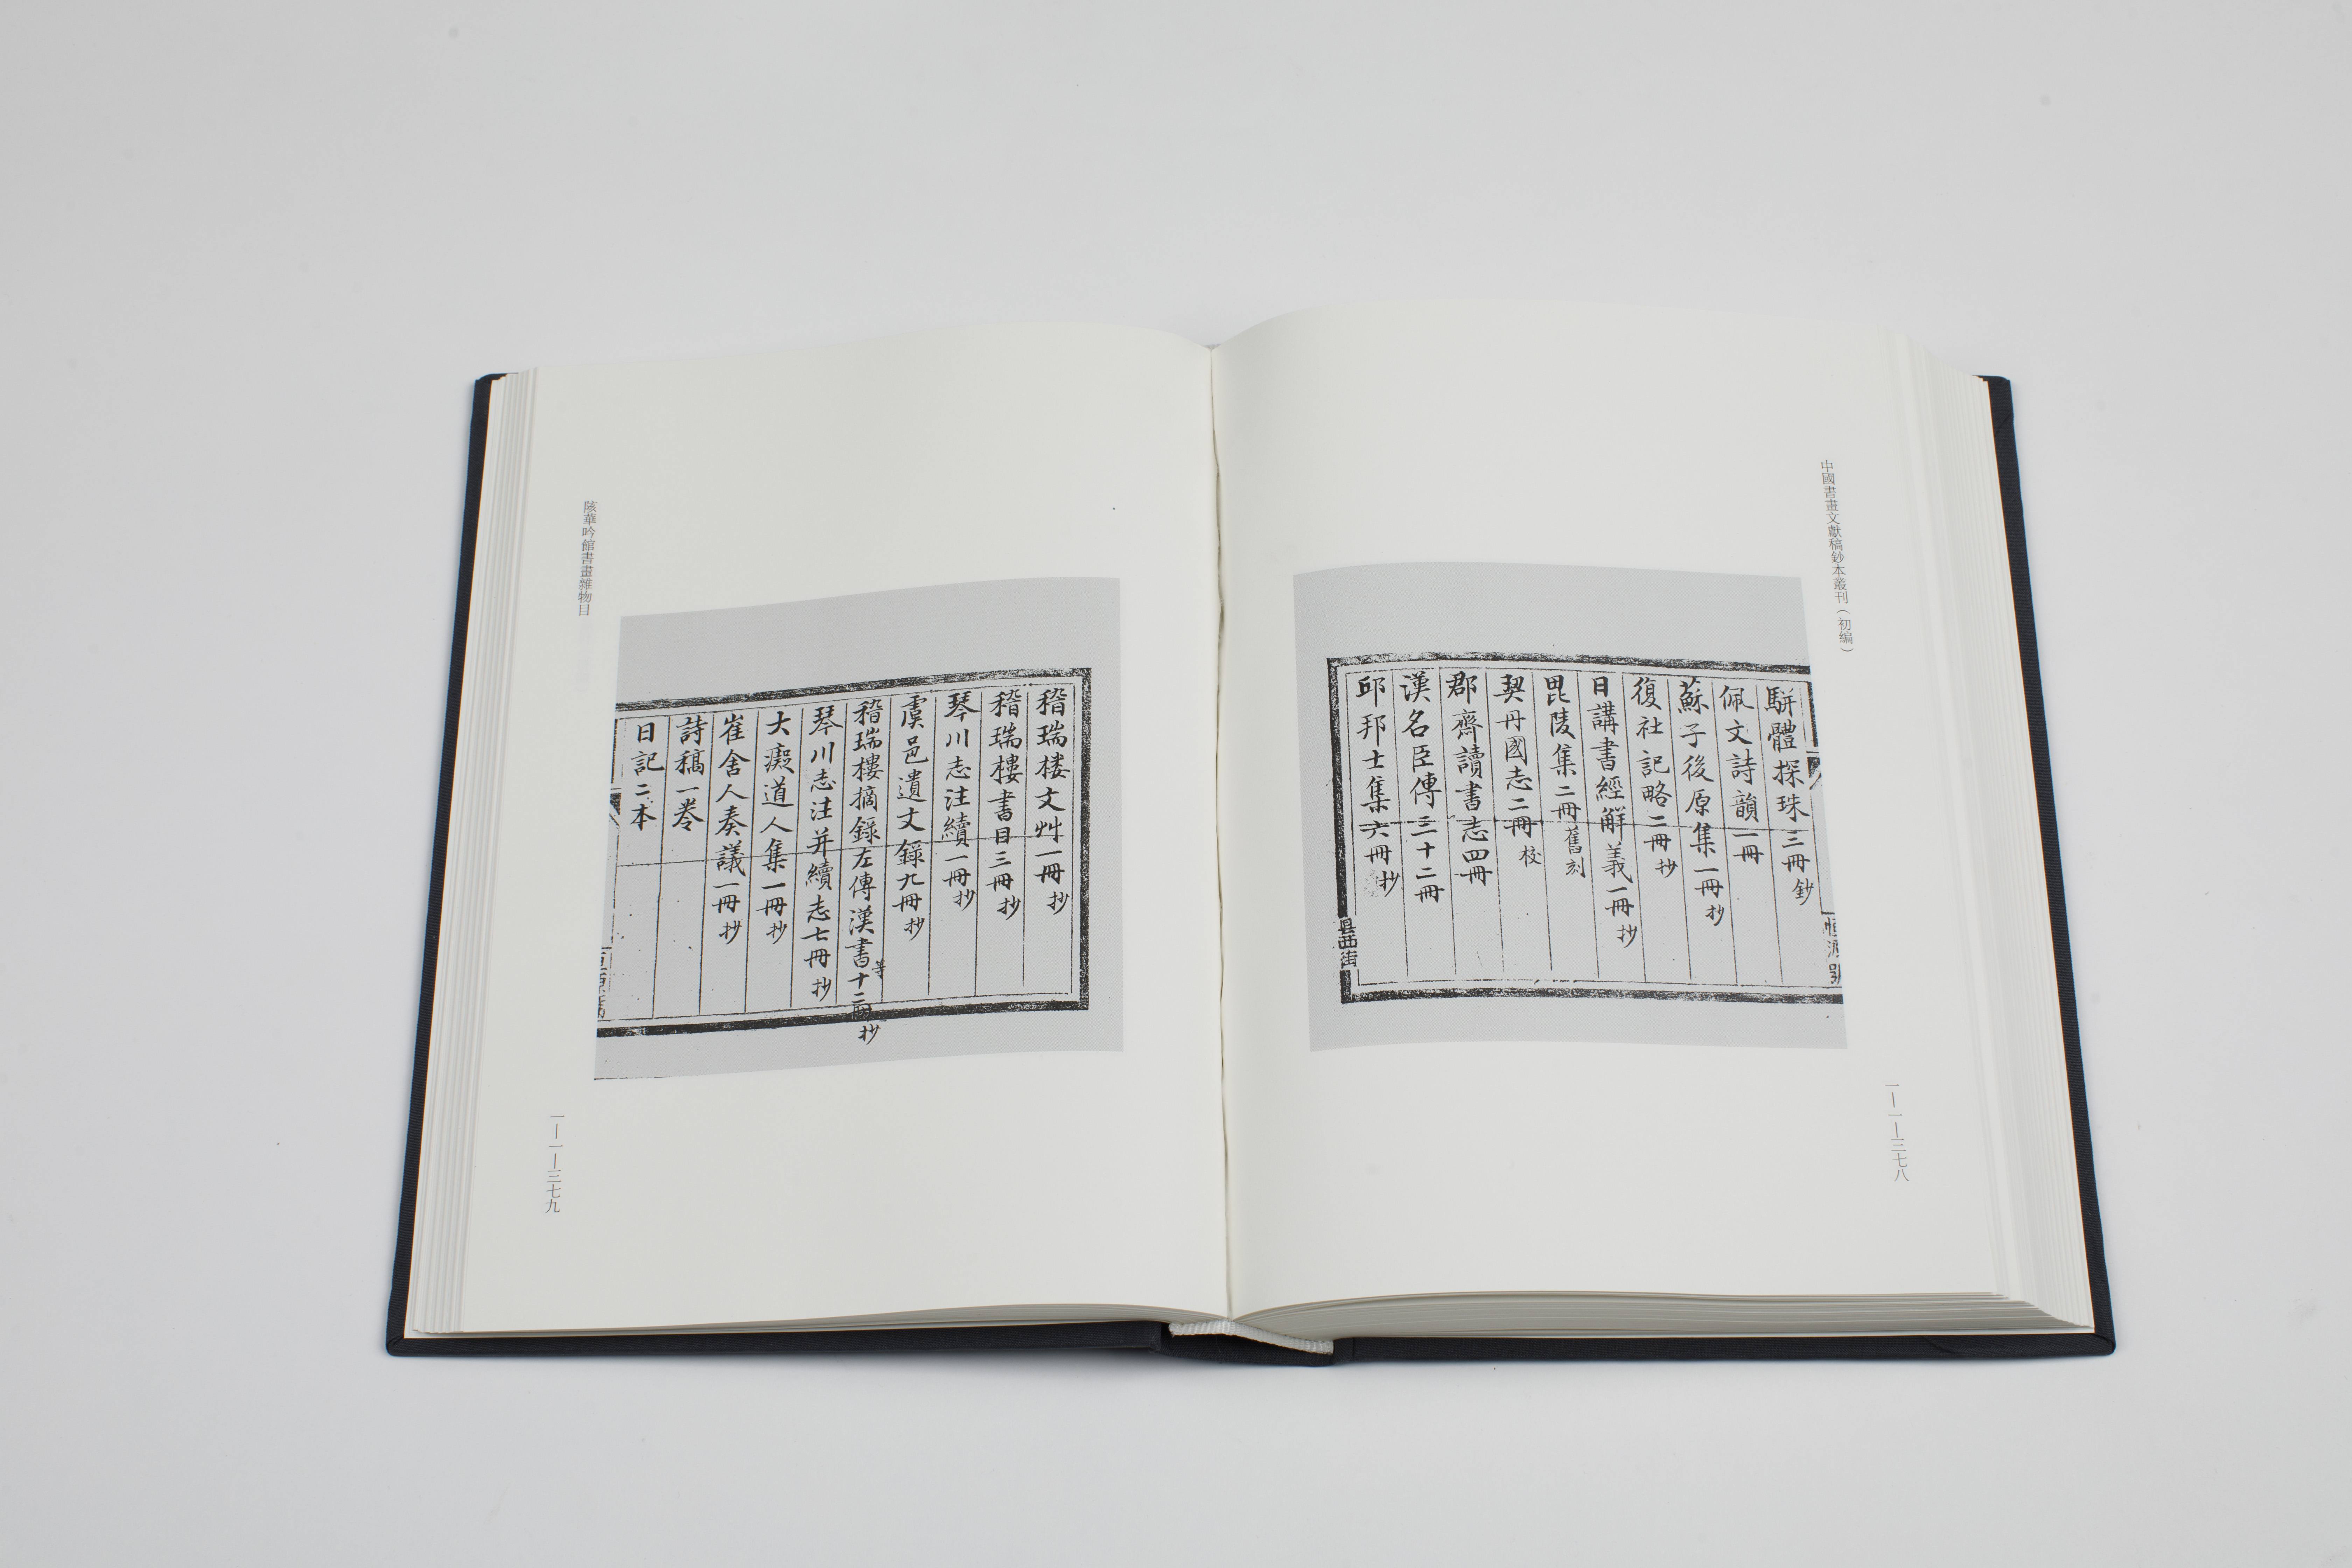 中國書畫文獻稿鈔本叢刊（初編）
駢體探珠三冊鈔
佩文詩韻一冊
蘇子後原集一冊抄
復社記略二冊抄
日講書經解義一冊抄
毘陵集二冊舊刻
契丹國志二冊校
郡齋讀書志四冊
漢名臣傳三十二冊
邱邦士集六冊抄
縣西街
恒源號
一—一—三七八
稽瑞楼文艸一冊抄
稽瑞樓書目三冊抄
琴川志注續一冊抄
虞邑遺文錄九冊抄
稽瑞樓摘錄左傳漢書等十二冊抄
琴川志注并續志七冊抄
大癡道人集一冊抄
崔舍人奏議一冊抄
詩稿一卷
日記二本
陔華吟館書畫雜物目
一—一—三七九